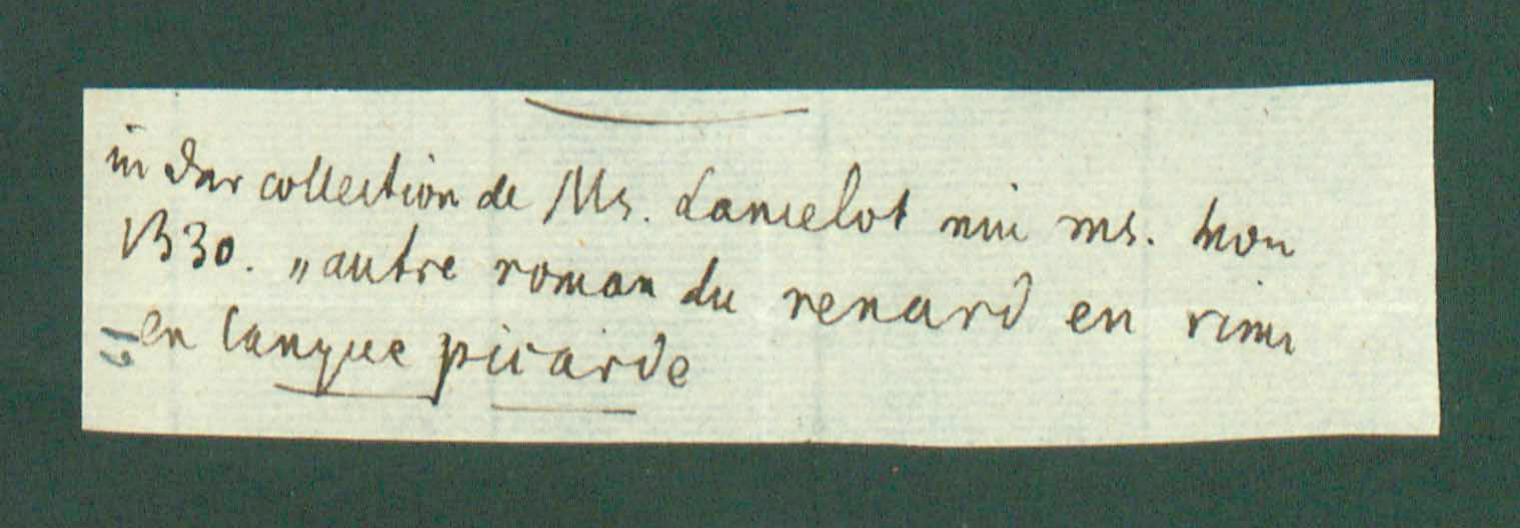 in der collection de Ms. Lancelot ein ms. von
1330. „autre roman du renard en rime
en langue picarde